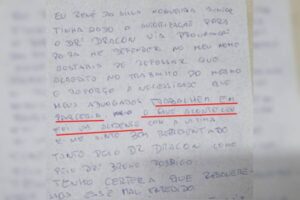 EU RENÊ DA SILVA NOGUEIRA JUNIOR
TINHA DADO A AUTORIZAÇÃO PARA
O DR DRACON VIA PROCURAÇÃO
ME DEFENDER NO MEU NOME
GOSTARIA DE REFORÇAR QUE
ACREDITO NO TRABALHO DO MESMO
E REFORÇO A NECESSIDADE QUE
MEUS ADVOGADOS TRABALHEM EM
PARCERIA. O QUE ACONTECEU
FOI UM ACIDENTE COM A VITIMA
E ME SINTO BEM REPRESENTADO
TANTO PELO DR DRACON COMO
PELO DR BRUNO RODRIGO
TENHO CERTEZA QUE RESOLVERE-
MOS ESSE MAL ENTENDIDO